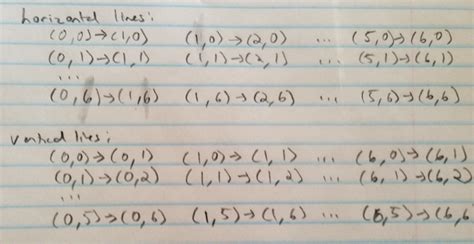 horizontal lines:
(0,0)→(1,0) (1,0)→(2,0) ... (5,0)→(6,0)
(0,1)→(1,1) (1,1)→(2,1) ... (5,1)→(6,1)
...
(0,6)→(1,6) (1,6)→(2,6) ... (5,6)→(6,6)
vertical lines;
(0,0)→(0,1) (1,0)→(1,1) ... (6,0)→(6,1)
(0,1)→(0,2) (1,1)→(1,2) ... (6,1)→(6,2)
...
(0,5)→(0,6) (1,5)→(1,6) ... (6,5)→(6,6